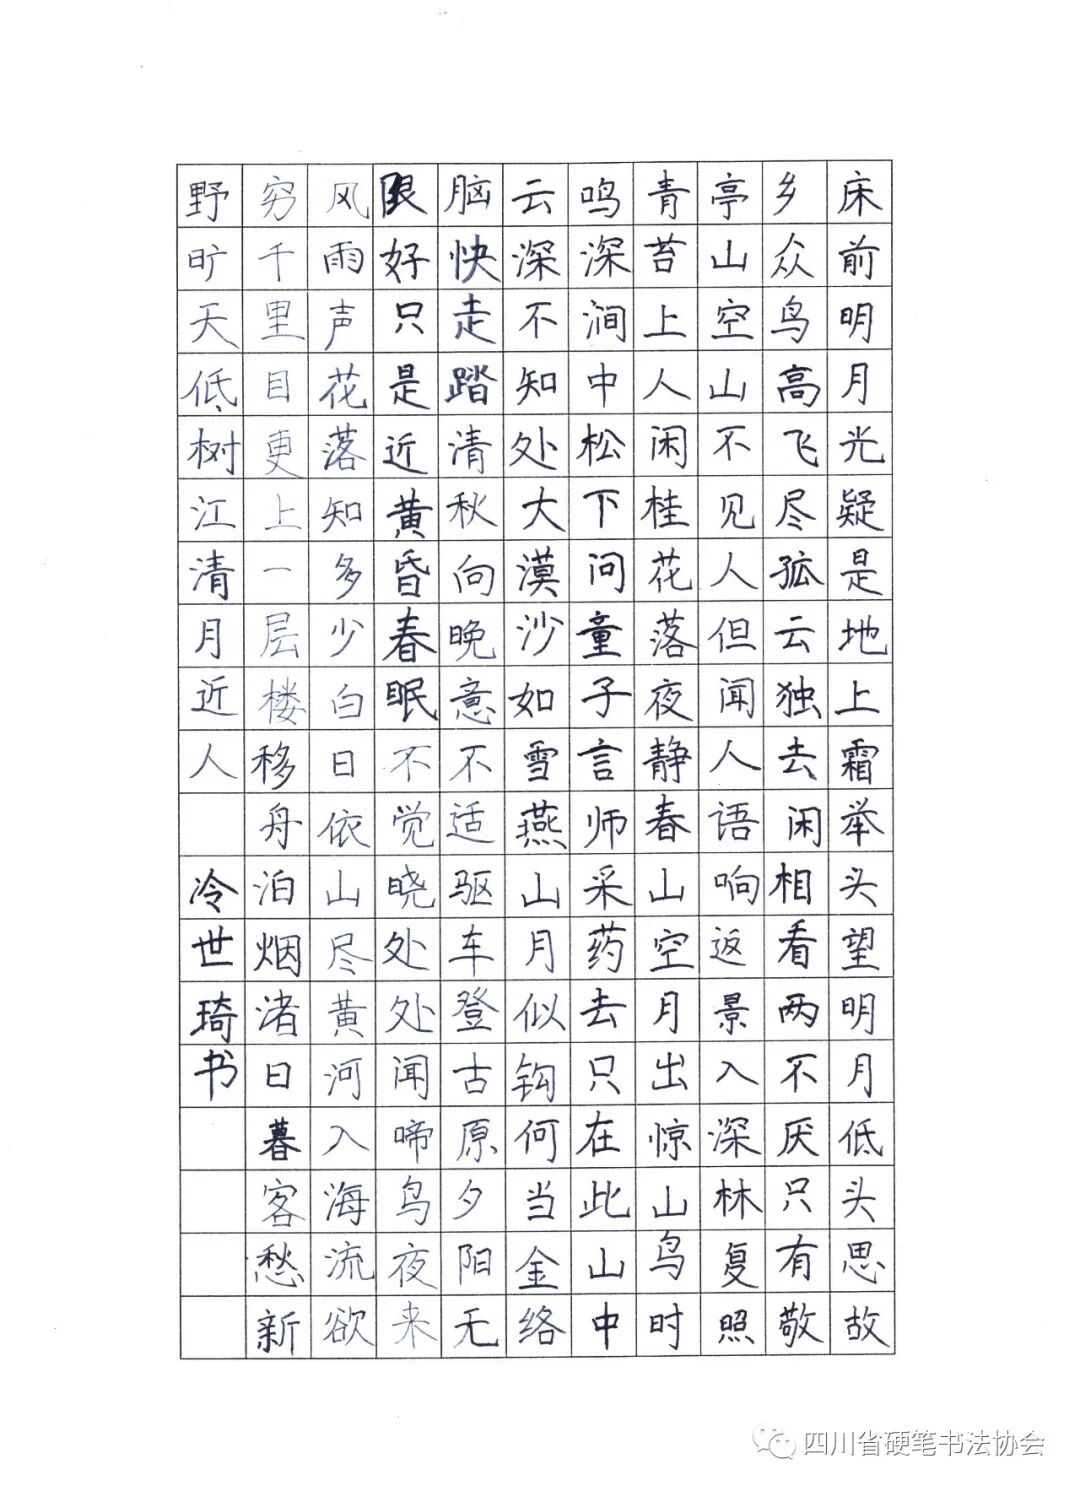 床前明月光疑是地上霜举头望明月低头思故
乡众鸟高飞尽孤云独去闲相看两不厌只有敬
亭山空山不见人但闻人语响返景入深林复照
青苔上人闲桂花落夜静春山空月出惊山鸟时
鸣深涧中松下问童子言师采药去只在此山中
云深不知处大漠沙如雪燕山月似钩何当金络
脑快走踏清秋向晚意不适驱车登古原夕阳无
限好只是近黄昏春眠不觉晓处处闻啼鸟夜来
风雨声花落知多少白日依山尽黄河入海流欲
穷千里目更上一层楼移舟泊烟渚日暮客愁新
野旷天低树江清月近人 冷世琦书
四川省硬笔书法协会